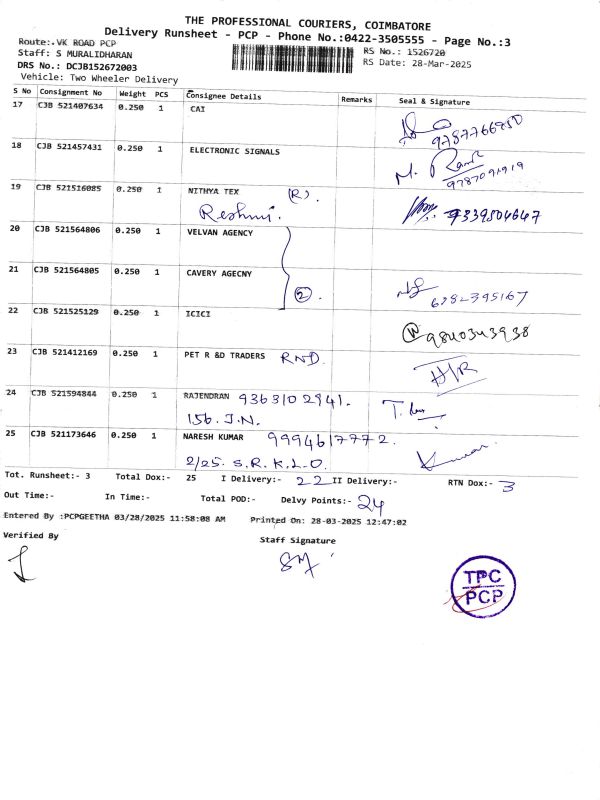 THE PROFESSIONAL COURIERS, COIMBATORE
Delivery Runsheet - PCP - Phone No.:0422-3505555 - Page No.:3
Route:- VK ROAD PCP
RS No.: 1526720
Staff: S MURALIDHARAN
RS Date: 28-Mar-2025
DRS No.: DCJB152672003
Vehicle: Two Wheeler Delivery
S No Consignment No Weight PCS Consignee Details Remarks Seal & Signature
17 CJB 521407634 0.250 1 CAI
18 CJB 521457431 0.250 1 ELECTRONIC SIGNALS
M. Ram
9787091919
19 CJB 521516085 0.250 1 NITHYA TEX (R).
Reshmi. 9339504647
20 CJB 521564806 0.250 1 VELVAN AGENCY
21 CJB 521564805 0.250 1 CAVERY AGECNY
2.
22 CJB 521525129 0.250 1 ICICI
W 9840343938
23 CJB 521412169 0.250 1 PET R &D TRADERS RND.
H/R
24 CJB 521594844 0.250 1 RAJENDRAN 9363102941.
156. J.N.
25 CJB 521173646 0.250 1 NARESH KUMAR 9994617772.
2/25. S.R.K.L.O. Kumar
Tot. Runsheet:- 3 Total Dox:- 25 I Delivery:- 22 II Delivery:- RTN Dox:- 3
Out Time:- In Time:- Total POD:- Delvy Points:- 24
Entered By :PCPGEETHA 03/28/2025 11:58:08 AM Printed On: 28-03-2025 12:47:02
Verified By
Staff Signature
TPC
PCP